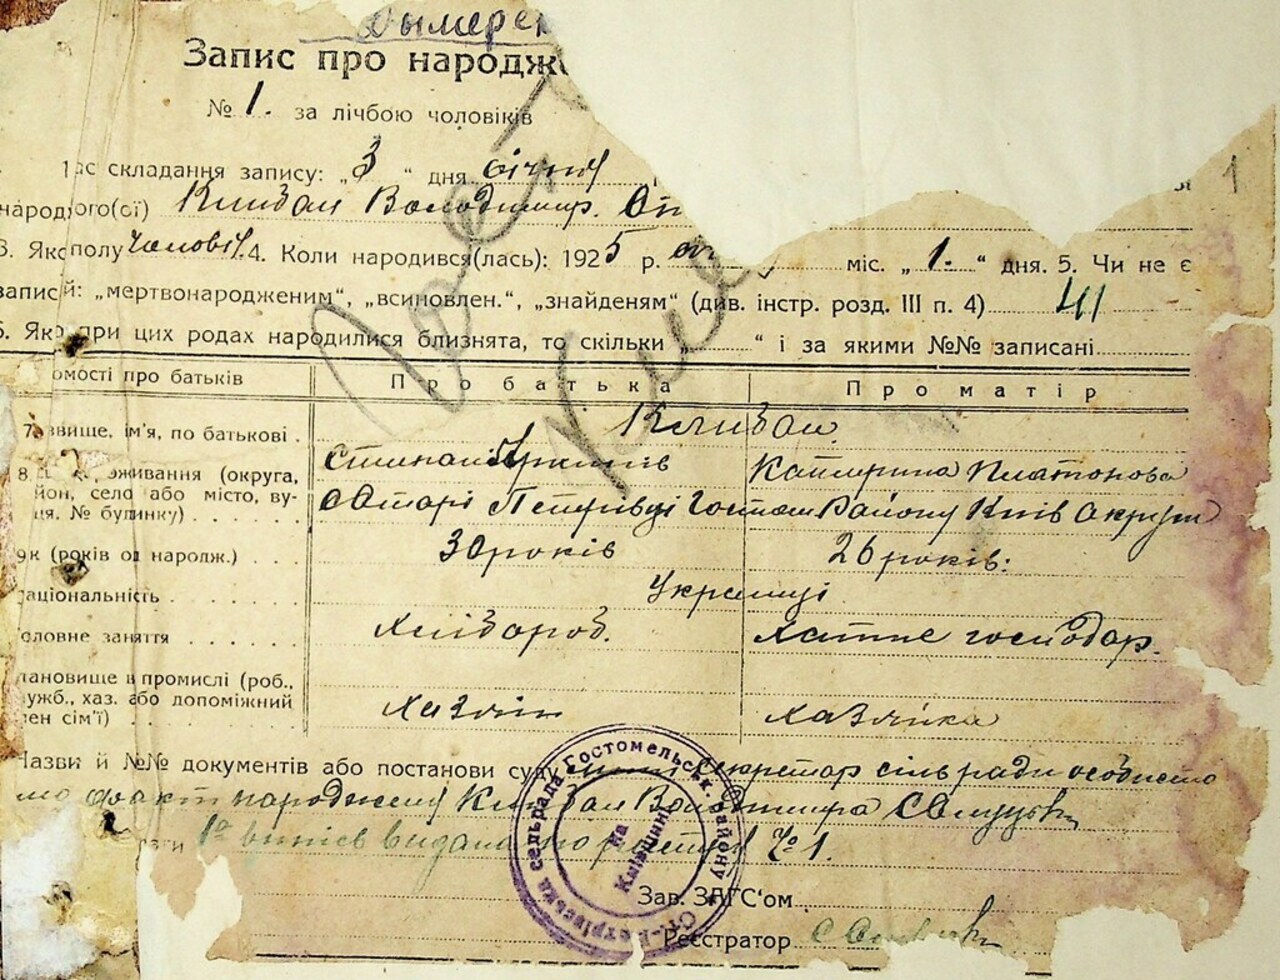 Дымерск
Запис про народже
№ 1. за лічбою чоловіків
час складання запису: „ 3 “ дня січня
1
народ ого(ої) Кливан Володимир. Ст
3. Якс полу Чоловіч. 4. Коли народився(лась): 1925 р. січ міс. „ 1. “ дня. 5. Чи не є
записй: „мертвонародженим“, „всиновлен.“, „знайденям“ (див. інстр. розд. III п. 4)
6. Як при цих родах народилися близнята, то скільки „ “ і за якими №№ записані
омості про батьків Про батька Про матір
7. звище, ім'я, по батькові Кливан
Степан Катерина Платонова
8. живання (округа, йон, село або місто, ву- ця, № будинку) Старі Петрівці Гостом Району Київ Округи
9 к (років од народж.) 30 років 26 років:
аціональність Українці
оловне заняття Хлібороб. хатнє господар.
тановище в промислі (роб., ужб., хаз. або допоміжний лен сім'ї) хазяїн хазяйка
Назви й №№ документів або постанови суду Секретар сільради особисто
факт народження Кливан Володимира
1й витяг видано № 1.
Ст.-Петрівська сельрада Гостомельськ. району
на Київщині
Зав. ЗАГС'ом
Реєстратор